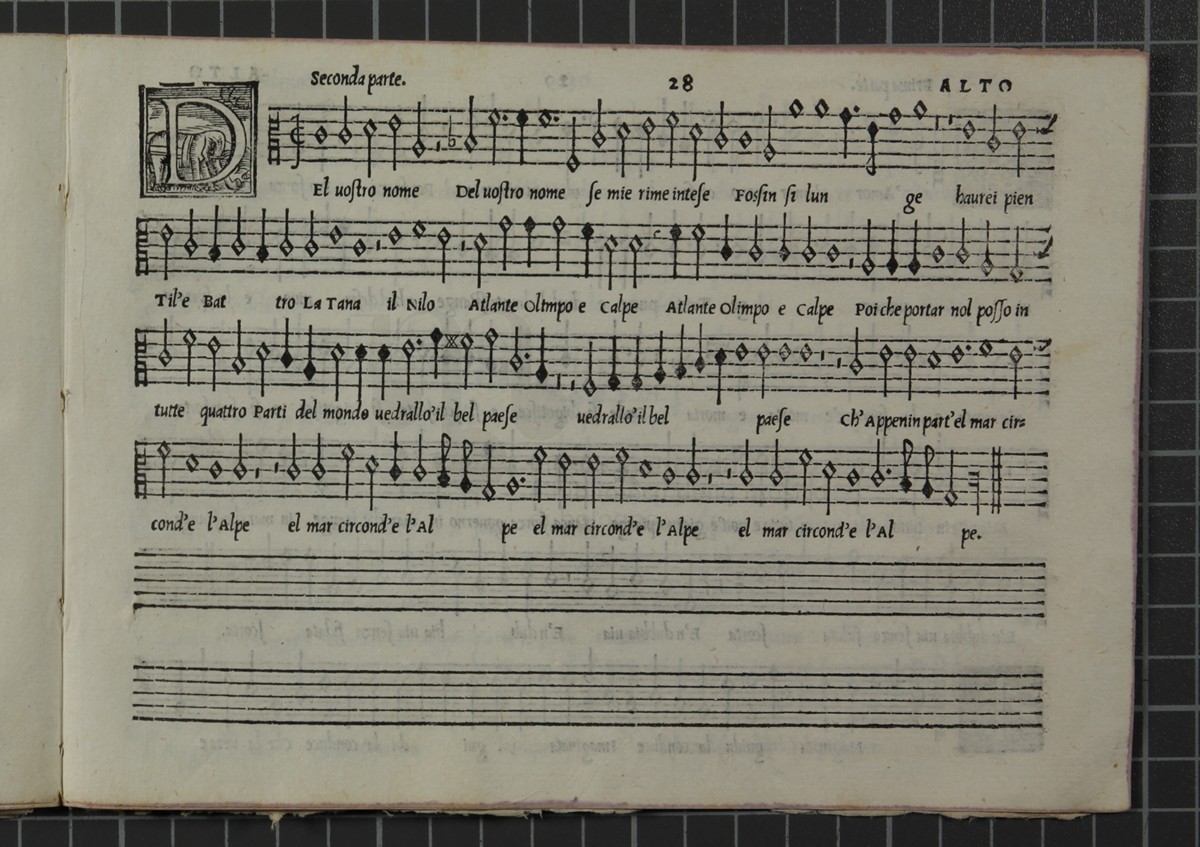 Seconda parte. 28 ALTO
D
El uoſtro nome Del uoſtro nome ſe mie rime inteſe Foſſin ſi lun ge haurei pien
Til'e Bat tro La Tana il Nilo Atlante Olimpo e Calpe Atlante Olimpo e Calpe Poi che portar nol poſſo in
tutte quattro Parti del mondo uedrallo'il bel paeſe uedrallo'il bel paeſe Ch'Appenin part'el mar cir=
cond'e l'Alpe el mar circond'e l'Al pe el mar circond'e l'Alpe el mar circond'e l'Al pe.